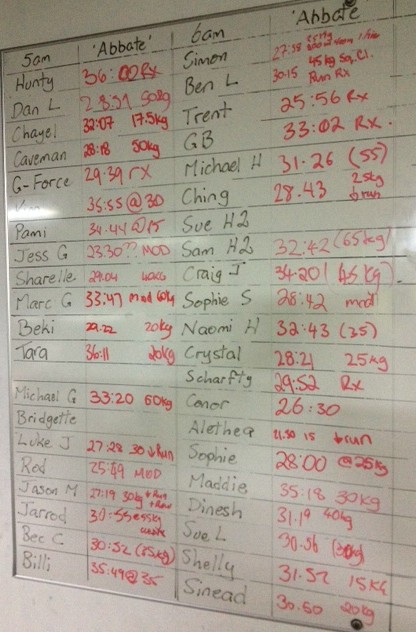 5am 'Abbate'
Hunty 36:00 RX
Dan L 28:51 50kg
Chayel 32:07 17.5kg
Caveman 28:18 50kg
G-Force 29:39 rx
35:55 @ 30
Pami 34.44 @ 15
Jess G 23:30?? MOD
Sharelle 29:04 40kg
Marc G 33:47 mod 60kg
Beki 29:22 20kg
Tara 36:11 20kg
Michael G 33:20 60kg
Bridgette
Luke J 27:28 30 ↓Run
Rod 25:59 MOD
Jason M 27:19 30kg
Jarrod 30:55
Bec C 30:52 (25kg)
Billi 35:49 @ 35
6am 'Abbate'
Simon 27:58
Ben L 30:15 45kg Sq.Cl. Run Rx
Trent 25:56 Rx
GB 33:02 Rx.
Michael H 31:26 (55)
Ching 28.43 25kg ↓run
Sue H2
Sam H2 32:42 (65kg)
Craig J 34:20 (45kg)
Sophie S 28:42 mod
Naomi H 32:43 (35)
Crystal 28:21 25kg
Scharfty 29:52 Rx
Conor 26:30
Alethea 21.50 15 ↓run
Sophie 28:00 @25kg
Maddie 35:18 30kg
Dinesh 31.19 40kg
Sue L 30.56 (30kg)
Shelly 31:52 15KG
Sinead 30.50 20kg